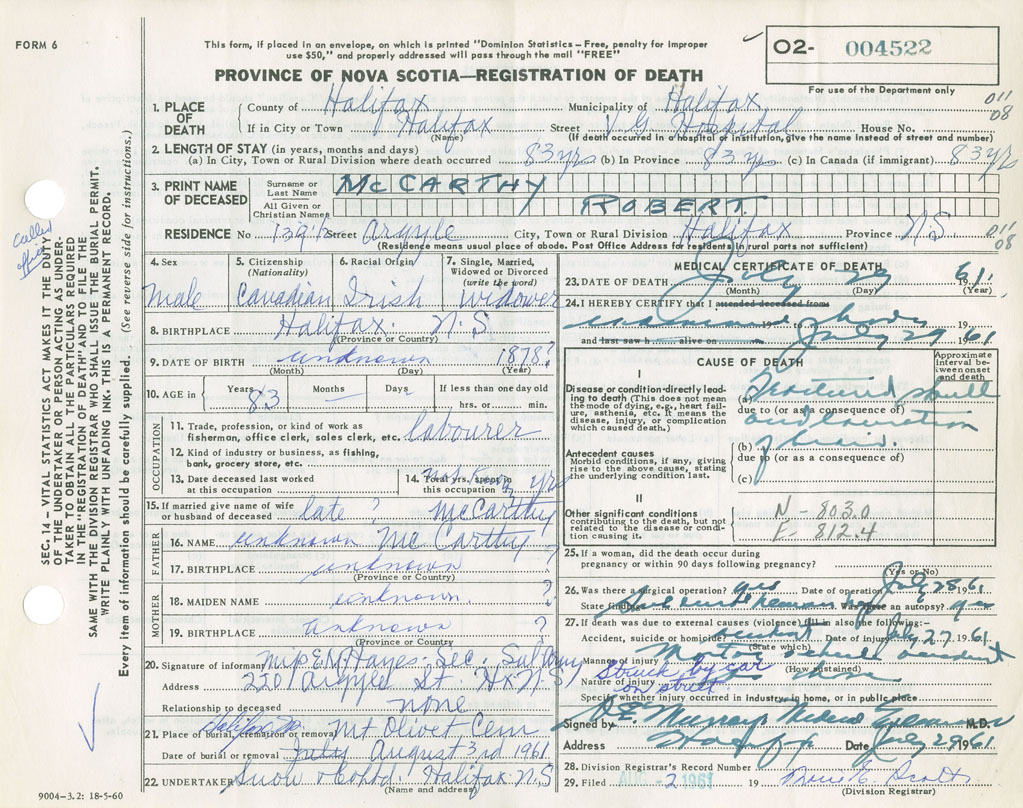 FORM 6
This form, if placed in an envelope, on which is printed "Dominion Statistics – Free, penalty for improper
use $50," and properly addressed will pass through the mail "FREE"
PROVINCE OF NOVA SCOTIA—REGISTRATION OF DEATH
O2- 004522
For use of the Department only
011
08
1. PLACE OF DEATH
County of Halifax Municipality of Halifax
If in City or Town Halifax Street V G Hospital House No.
(Name) (If death occurred in a hospital or institution, give the name instead of street and number)
2. LENGTH OF STAY (in years, months and days)
(a) In City, Town or Rural Division where death occurred 83 yrs (b) In Province 83 yrs (c) In Canada (if immigrant) 83 yrs
3. PRINT NAME OF DECEASED
Surname or Last Name McCARTHY
All Given or Christian Names ROBERT
RESIDENCE No 139½ Street Argyle City, Town or Rural Division Halifax Province N.S
011
08
(Residence means usual place of abode. Post Office Address for residents in rural parts not sufficient)
4. Sex
Male
5. Citizenship (Nationality)
Canadian
6. Racial Origin
Irish
7. Single, Married, Widowed or Divorced (write the word)
Widower
8. BIRTHPLACE Halifax. N.S
(Province or Country)
9. DATE OF BIRTH unknown 1878?
(Month) (Day) (Year)
10. AGE in
Years 83
Months —
Days
If less than one day old
hrs. or min.
OCCUPATION
11. Trade, profession, or kind of work as fisherman, office clerk, sales clerk, etc. labourer
12. Kind of industry or business, as fishing, bank, grocery store, etc.
13. Date deceased last worked at this occupation
14. Total yrs. spent in this occupation yrs
15. If married give name of wife or husband of deceased late ? McCarthy
FATHER
16. NAME unknown McCarthy
17. BIRTHPLACE unknown ?
(Province or Country)
MOTHER
18. MAIDEN NAME unknown. ?
19. BIRTHPLACE unknown ?
(Province or Country)
20. Signature of informant E M Hayes. Sec. Sal Army
Address 220 Argyle St. Hx N.S
Relationship to deceased none
21. Place of burial, cremation or removal Mt Olivet Cem
Date of burial or removal July August 3rd 1961
22. UNDERTAKER Snow & Co Ltd. Halifax N.S
(Name and address)
9004—3.2: 18-5-60
MEDICAL CERTIFICATE OF DEATH
23. DATE OF DEATH July 29 61
(Month) (Day) (Year)
24. I HEREBY CERTIFY that I attended deceased from
examined body
19 to July 29 1961
and last saw h alive on 19
CAUSE OF DEATH
Approximate interval between onset and death
I
Disease or condition directly leading to death (This does not mean the mode of dying, e.g., heart failure, asthenia, etc. It means the disease, injury, or complication which caused death.)
(a) Fractured skull
due to (or as a consequence of)
and laceration
(b) of brain.
due to (or as a consequence of)
(c)
Antecedent causes
Morbid conditions, if any, giving rise to the above cause, stating the underlying condition last.
II
Other significant conditions
contributing to the death, but not related to the disease or condition causing it.
N - 803.0
E - 812.4
25. If a woman, did the death occur during pregnancy or within 90 days following pregnancy?
(Yes or No)
26. Was there a surgical operation? yes Date of operation July 28 61
State findings Was there an autopsy? yes
27. If death was due to external causes (violence) fill in also the following:—
Accident, suicide or homicide? accident Date of injury July 27 1961
(State which)
Manner of injury Motor vehicle accident
Struck by car (How sustained)
on street.
Nature of injury
Specify whether injury occurred in industry, in home, or in public place
Signed by Medical Examiner M.D.
Address Halifax Date July 29 1961
28. Division Registrar's Record Number
29. Filed AUG - 2 1961
(Division Registrar)
SEC. 14 – VITAL STATISTICS ACT MAKES IT THE DUTY
OF THE UNDERTAKER OR PERSON ACTING AS UNDER-
TAKER TO OBTAIN ALL THE PARTICULARS REQUIRED
IN THE "REGISTRATION OF DEATH" AND TO FILE THE
SAME WITH THE DIVISION REGISTRAR WHO SHALL ISSUE THE BURIAL PERMIT.
WRITE PLAINLY WITH UNFADING INK. THIS IS A PERMANENT RECORD.
Every item of information should be carefully supplied. (See reverse side for instructions.)
called
office